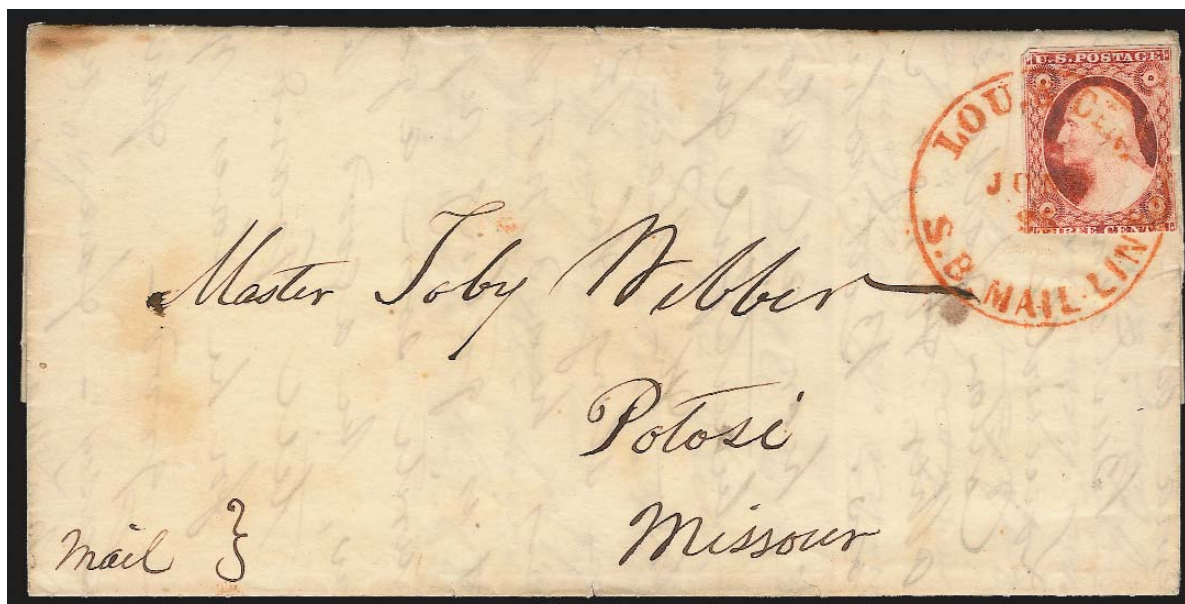 U.S.POSTAGE
THREE CENTS
LOU. & CIN.
S.B. MAIL-LINE
Master Toby Webber
Potosi
Missour
Mail }